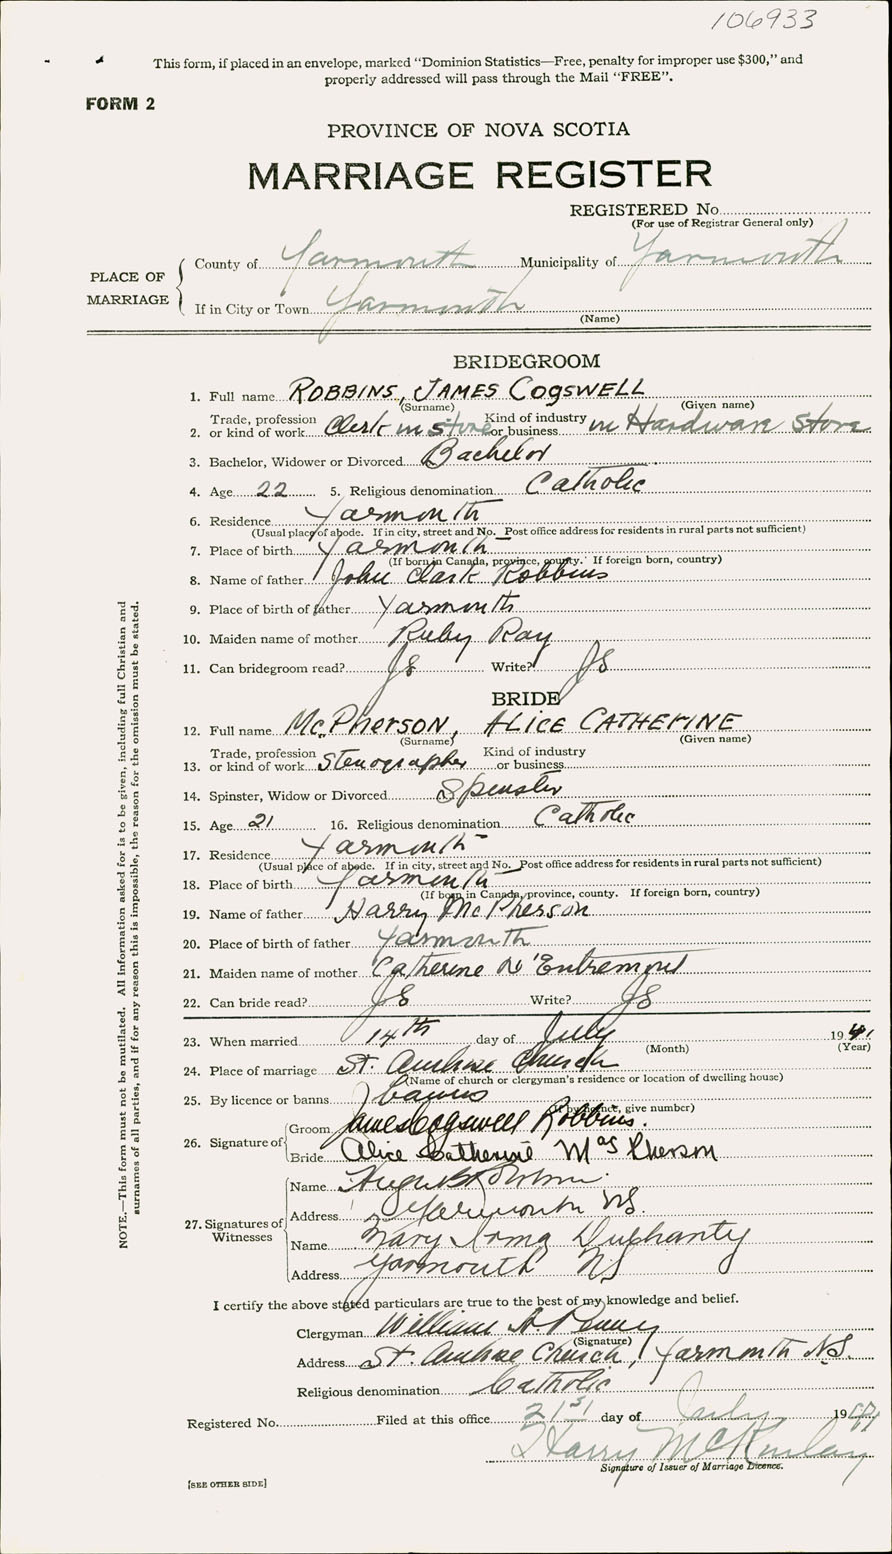 106933
This form, if placed in an envelope, marked "Dominion Statistics—Free, penalty for improper use $300," and
properly addressed will pass through the Mail "FREE".
FORM 2
PROVINCE OF NOVA SCOTIA
MARRIAGE REGISTER
REGISTERED No.
(For use of Registrar General only)
PLACE OF MARRIAGE
County of Yarmouth Municipality of Yarmouth
If in City or Town Yarmouth
(Name)
BRIDEGROOM
1. Full name ROBBINS, JAMES COGSWELL
(Surname) (Given name)
2. Trade, profession or kind of work Clerk in store Kind of industry or business in Hardware Store
3. Bachelor, Widower or Divorced Bachelor
4. Age 22 5. Religious denomination Catholic
6. Residence Yarmouth
(Usual place of abode. If in city, street and No. Post office address for residents in rural parts not sufficient)
7. Place of birth Yarmouth
(If born in Canada, province, county. If foreign born, country)
8. Name of father John Clark Robbins
9. Place of birth of father Yarmouth
10. Maiden name of mother Ruby Ray
11. Can bridegroom read? Write?
BRIDE
12. Full name McPHERSON, ALICE CATHERINE
(Surname) (Given name)
13. Trade, profession or kind of work Stenographer Kind of industry or business
14. Spinster, Widow or Divorced Spinster
15. Age 21 16. Religious denomination Catholic
17. Residence Yarmouth
(Usual place of abode. If in city, street and No. Post office address for residents in rural parts not sufficient)
18. Place of birth Yarmouth
(If born in Canada, province, county. If foreign born, country)
19. Name of father Harry McPherson
20. Place of birth of father Yarmouth
21. Maiden name of mother Catherine D'Entremont
22. Can bride read? Write?
23. When married 14th day of July 1941
(Month) (Year)
24. Place of marriage St. Ambrose Church
(Name of church or clergyman's residence or location of dwelling house)
25. By licence or banns banns
(If by licence, give number)
26. Signature of
Groom James Cogswell Robbins.
Bride Alice Catherine MacPherson
27. Signatures of Witnesses
Name
Address Yarmouth NS.
Name Mary Duphanty
Address Yarmouth NS
I certify the above stated particulars are true to the best of my knowledge and belief.
Clergyman William A. Penny
(Signature)
Address St. Ambrose Church, Yarmouth N.S.
Religious denomination Catholic
Registered No. Filed at this office 21st day of July 1941
Harry McKinlay
Signature of Issuer of Marriage Licence.
[SEE OTHER SIDE]
NOTE.—This form must not be mutilated. All information asked for is to be given, including full Christian and
surnames of all parties, and if for any reason this is impossible, the reason for the omission must be stated.